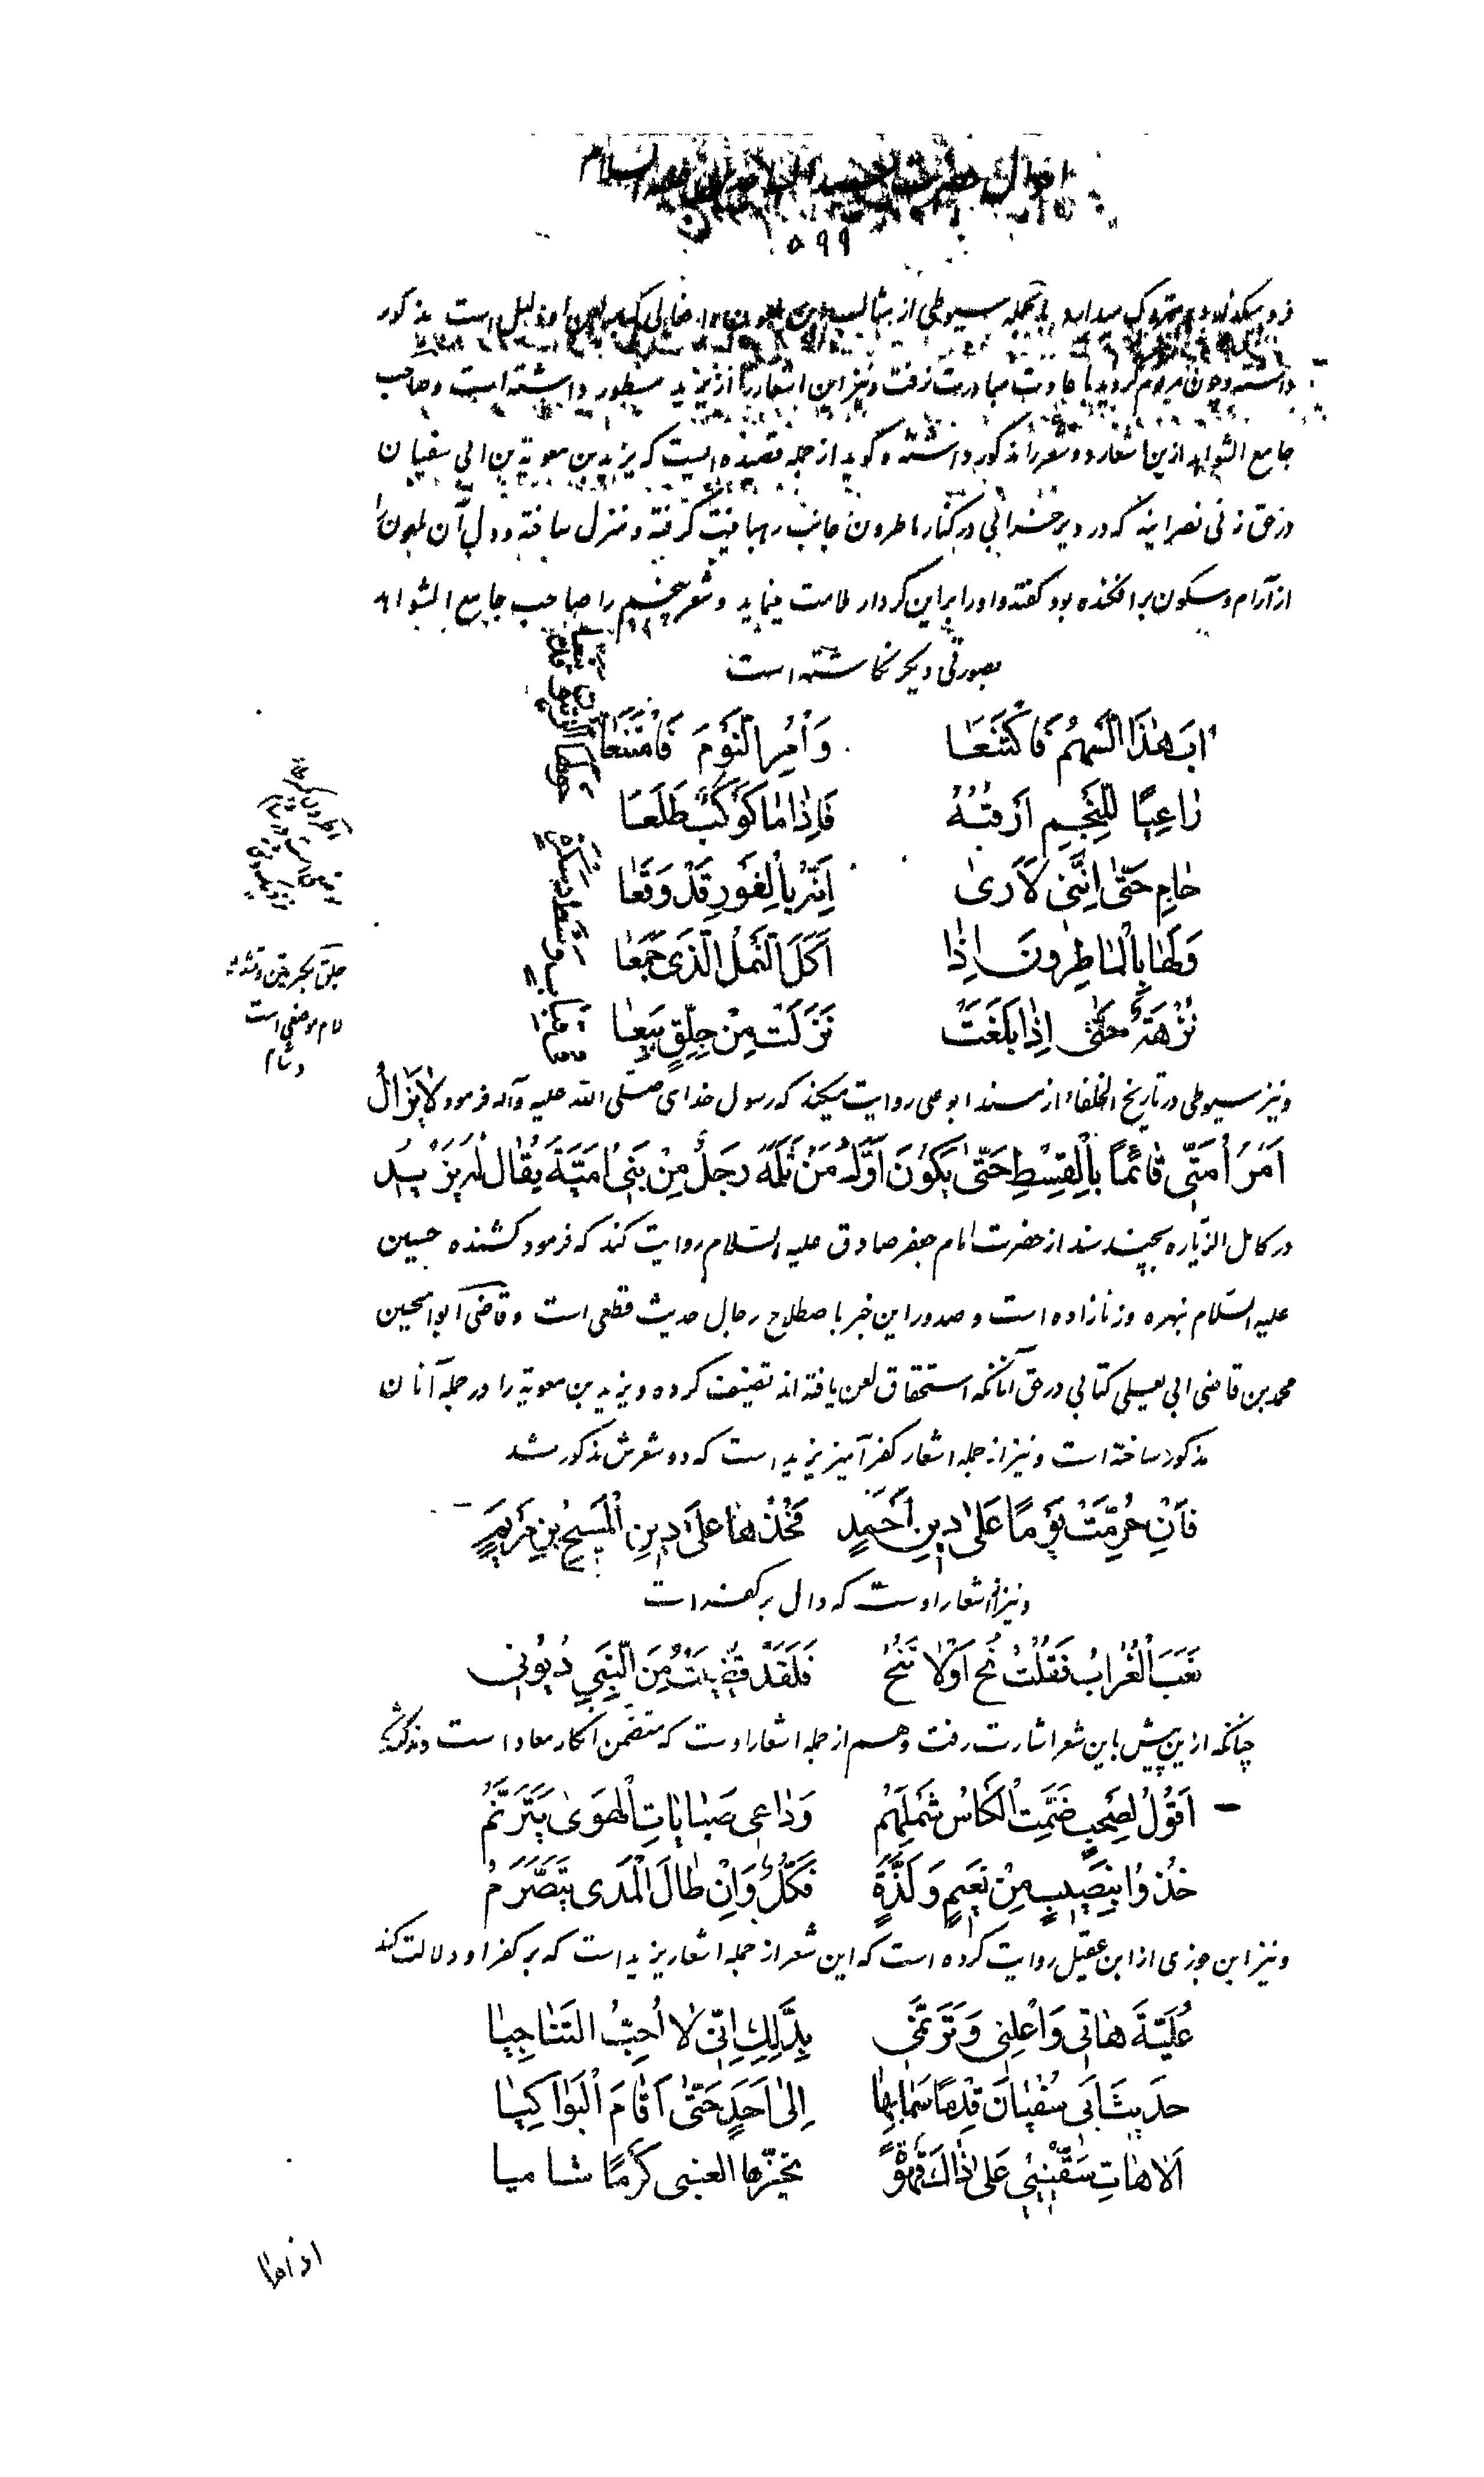 احوال حضرت سید الساجدین علیه السلام
۵۹۹
سیوطی از
داشته و چون مردم مبادرت گرفت و نیز این اشعار را از یزید مسطور داشته است و صاحب
جامع الشواهد ازین اشعار دو شعر را مذکور داشته و گوید از جمله قصیده ایست که یزید بن معویة بن ابی سفیان
در حق زنی نصرانیه که در دیر خرابی در کنار ماطرون جانب رهبانیت گرفته و منزل ساخته و دل آن ملعون را
از آرام و سکون برافکنده بود گفته و او را بر این کردار ملامت مینماید و شعر پنجم را صاحب جامع الشواهد
بصورتی دیگر نگاشته است
اٰبَ هٰذَا الْهَمُّ فَاكْتَنَعَا وَاَمَرَ النَّوْمَ فَامْتَنَعَا
رٰاعِیًا لِلنَّجْمِ اَرْقُبُهُ فَاِذٰا مٰا كَوْكَبٌ طَلَعَا
حٰامِ حَتّٰی اِنَّنی لَاَرٰی اَنَّهُ بِالْغَوْرِ قَدْ وَقَعَا
وَلَهٰا بِالْمٰاطِرُونَ اِذٰا اَكَلَ النَّمْلُ الَّذی جَمَعَا
نُزْهَةٌ حَتّٰی اِذٰا بَلَغَتْ نَزَلَتْ مِنْ جِلِّقٍ بِیَعًا
فی قباب وسط دسکرة حولها الزیتون قد ینعا
جلق بکسرتین و تشدید
لام موضعی است
در شام
و نیز سیوطی در تاریخ الخلفاء از مسند ابو یعلی روایت میکند که رسول خدای صلی الله علیه و آله فرمود لٰا یَزٰالُ
اَمْرُ اُمَّتی قٰائِمًا بِالْقِسْطِ حَتّٰی یَكُونَ اَوَّلُ مَنْ ثَلَمَهُ رَجُلٌ مِنْ بَنی اُمَیَّةَ یُقٰالُ لَهُ یَزیدُ
در کامل الزیاره بچند سند از حضرت امام جعفر صادق علیه السلام روایت کند که فرمود کشنده حسین
علیه السلام نبهره و زنازاده است و صدور این خبر باصطلاح رجال حدیث قطعی است و قاضی ابو الحسین
محمد بن قاضی ابی یعلی کتابی در حق آنانکه استحقاق لعن یافته اند تصنیف کرده و یزید بن معویة را در جمله آنان
مذکور ساخته است و نیز از جمله اشعار کفر آمیز یزید است که دو شعرش مذکور شد
فَاِنْ حُرِّمَتْ یَوْمًا عَلیٰ دینِ اَحْمَدٍ فَخُذْهٰا عَلیٰ دینِ الْمَسیحِ بْنِ مَرْیَمٍ
و نیز از اشعار اوست که دال بر کفر است
نَعَبَ الْغُرٰابُ فَقُلْتُ نُحْ اَوْ لٰا تَنُحْ فَلَقَدْ قَضَیْتُ مِنَ النَّبِیِّ دُیُونی
چنانکه ازین پیش باین شعر اشارت رفت و هم از جمله اشعار اوست که متضمن انکار معاد است
اَقُولُ لِصَحْبٍ ضَمَّتِ الْكَاْسُ شَمْلَهُمْ وَدٰاعی صَبٰابٰاتِ الْهَوٰی یَتَرَنَّمُ
خُذُوا بِنَصیبٍ مِنْ نَعیمٍ وَلَذَّةٍ فَكُلٌّ وَاِنْ طٰالَ الْمَدٰی یَتَصَرَّمُ
و نیز ابن جوزی از ابن عقیل روایت کرده است که این شعر از جمله اشعار یزید است که بر کفر او دلالت کند
عُلَیَّةَ هٰاتی وَاَعْلِنی وَتَرَنَّمی بِذٰلِكِ اِنّی لٰا اُحِبُّ التَّنٰاجِیٰا
حَدیثَ اَبی سُفْیٰانَ قِدْمًا سَمٰا بِهٰا اِلیٰ اُحُدٍ حَتّٰی اَقٰامَ الْبَوٰاكِیٰا
اَلٰا هٰاتِ سَقّینی عَلیٰ ذٰاكَ قَهْوَةً تخیّرها العنسی کَرْمًا شامیا
اذا ما